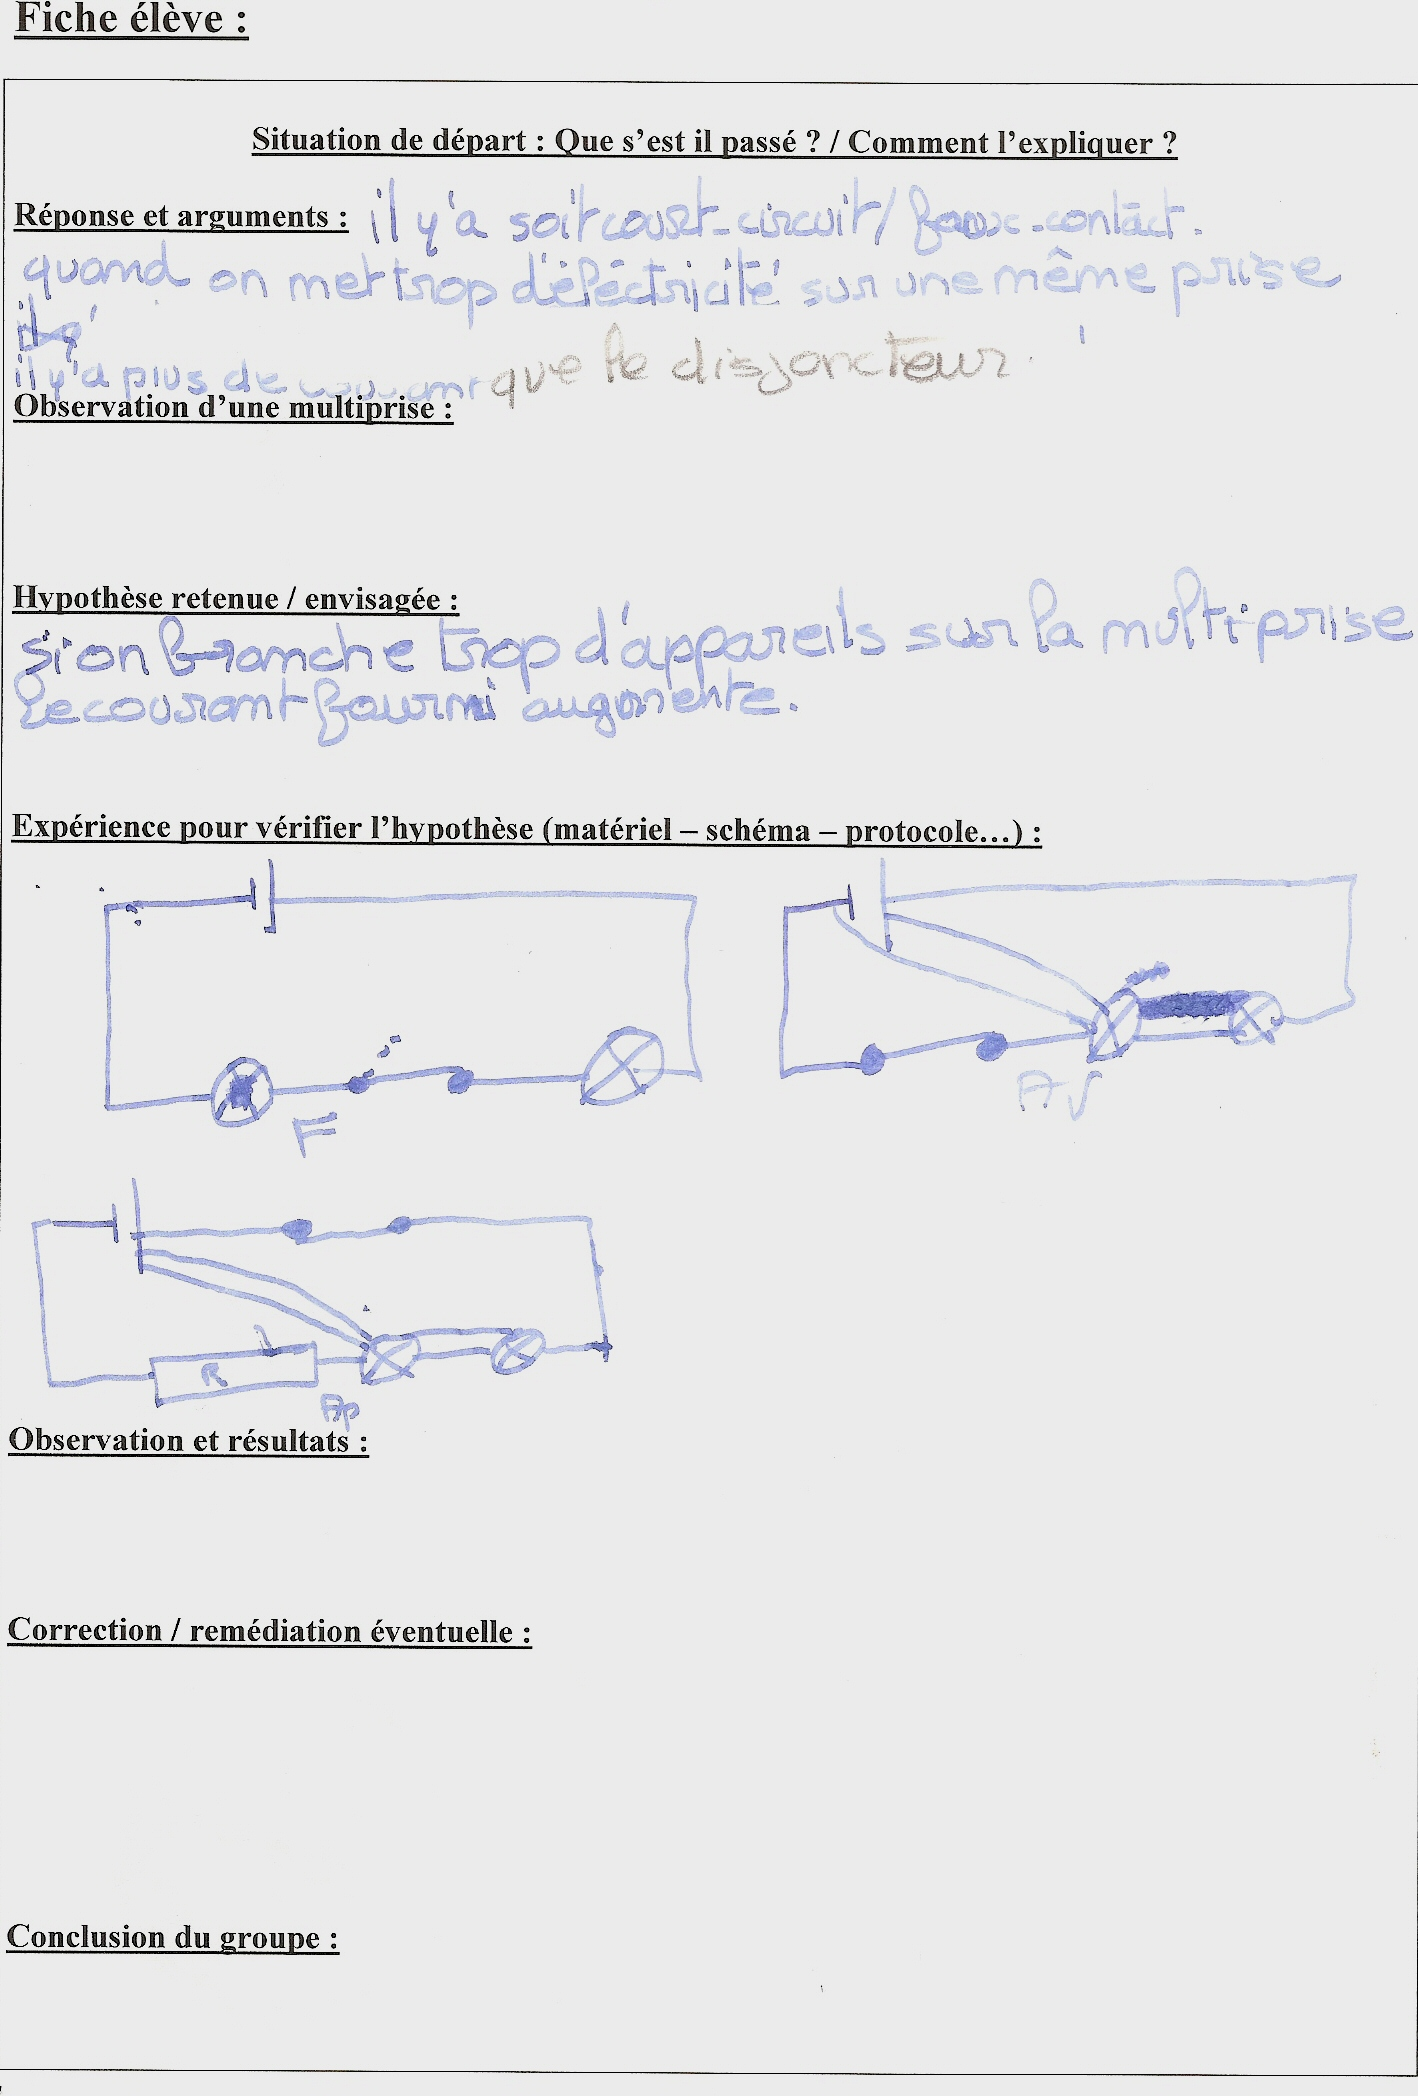 Fiche élève :
Situation de départ : Que s'est il passé ? / Comment l'expliquer ?
Réponse et arguments : il y'a soit court-circuit/ faux-contact.
quand on met trop d'éléctricité sur une même prise
il y'a plus de courant que le disjoncteur.
Observation d'une multiprise :
Hypothèse retenue / envisagée :
si on branche trop d'appareils sur la multi-prise
le courant fourni augmente.
Expérience pour vérifier l'hypothèse (matériel – schéma – protocole…) :
F
AV
R
Ap
Observation et résultats :
Correction / remédiation éventuelle :
Conclusion du groupe :